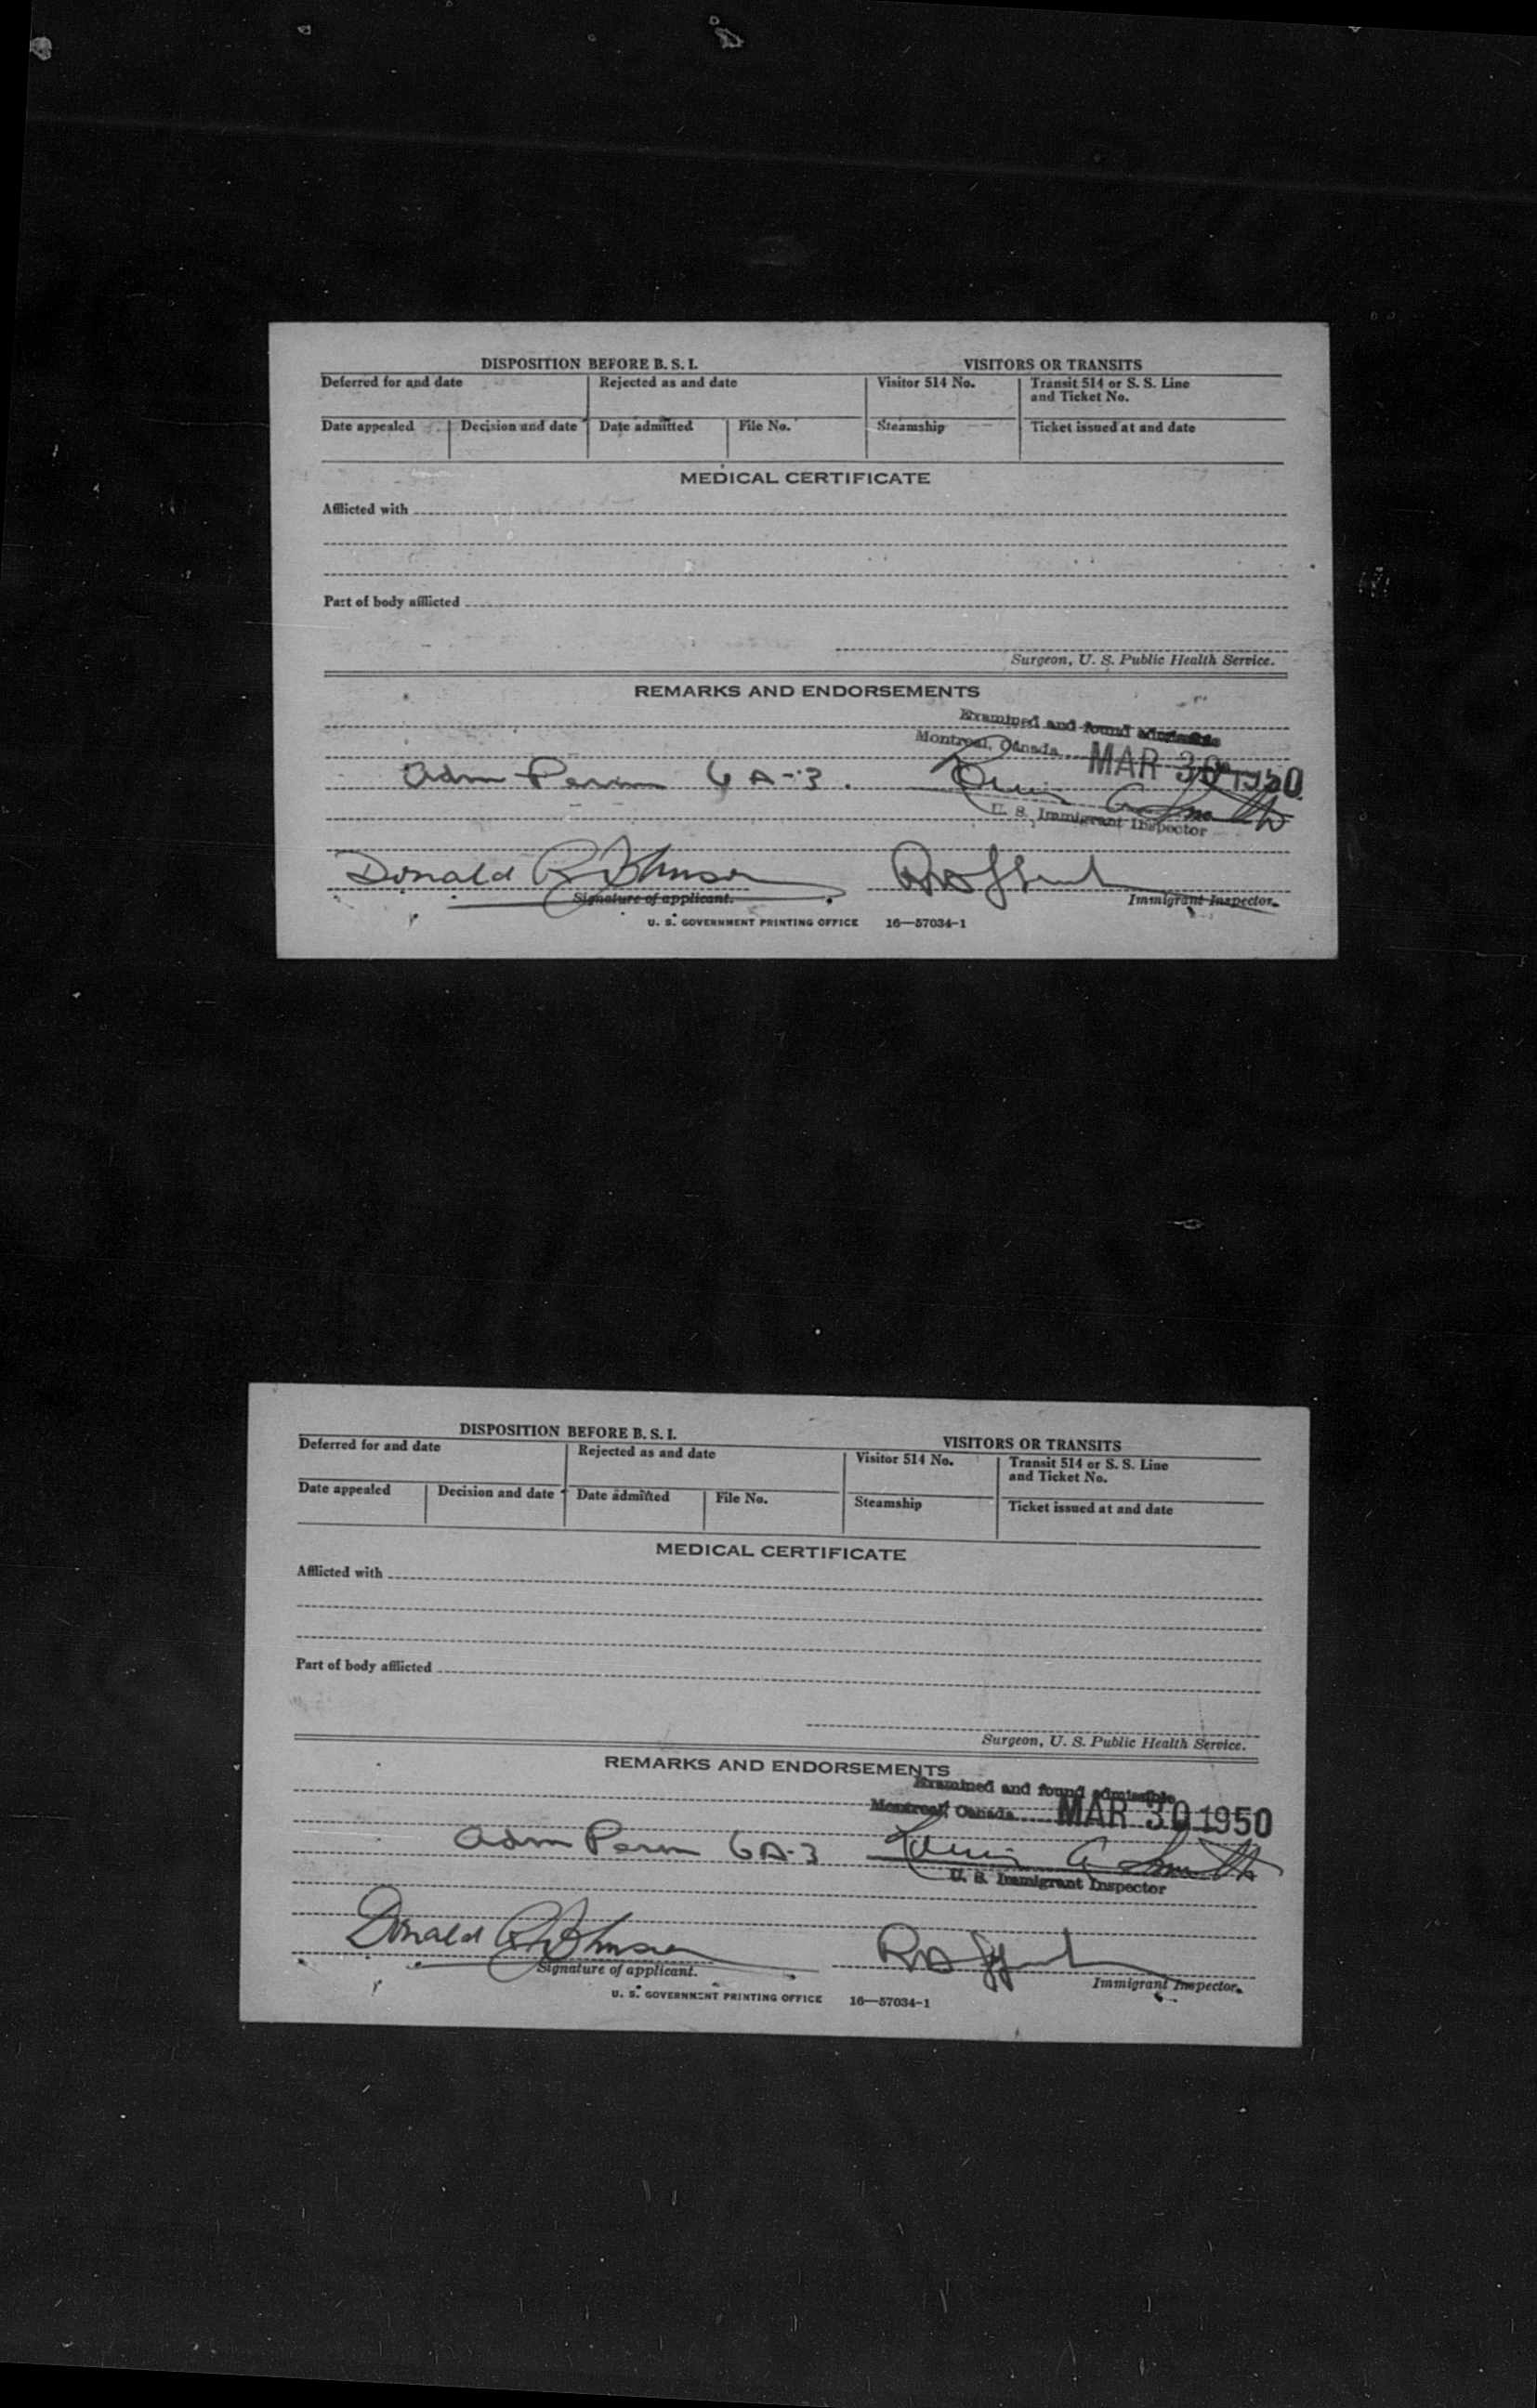 DISPOSITION BEFORE B. S. I. VISITORS OR TRANSITS
Deferred for and date Rejected as and date Visitor 514 No. Transit 514 or S. S. Line
and Ticket No.
Date appealed Decision and date Date admitted File No. Steamship Ticket issued at and date
MEDICAL CERTIFICATE
Afflicted with
Part of body afflicted
Surgeon, U. S. Public Health Service.
REMARKS AND ENDORSEMENTS
Examined and found admissible
Montreal, Canada MAR 30 1950
Adm Perm 6A-3.
U. S. Immigrant Inspector
Donald R Johnson
Signature of applicant. Immigrant Inspector.
U. S. GOVERNMENT PRINTING OFFICE 16—57034-1
DISPOSITION BEFORE B. S. I. VISITORS OR TRANSITS
Deferred for and date Rejected as and date Visitor 514 No. Transit 514 or S. S. Line
and Ticket No.
Date appealed Decision and date Date admitted File No. Steamship Ticket issued at and date
MEDICAL CERTIFICATE
Afflicted with
Part of body afflicted
Surgeon, U. S. Public Health Service.
REMARKS AND ENDORSEMENTS
Examined and found admissible
Montreal, Canada MAR 30 1950
Adm Perm 6A-3
U. S. Immigrant Inspector
Donald R Johnson
Signature of applicant. Immigrant Inspector.
U. S. GOVERNMENT PRINTING OFFICE 16—57034-1